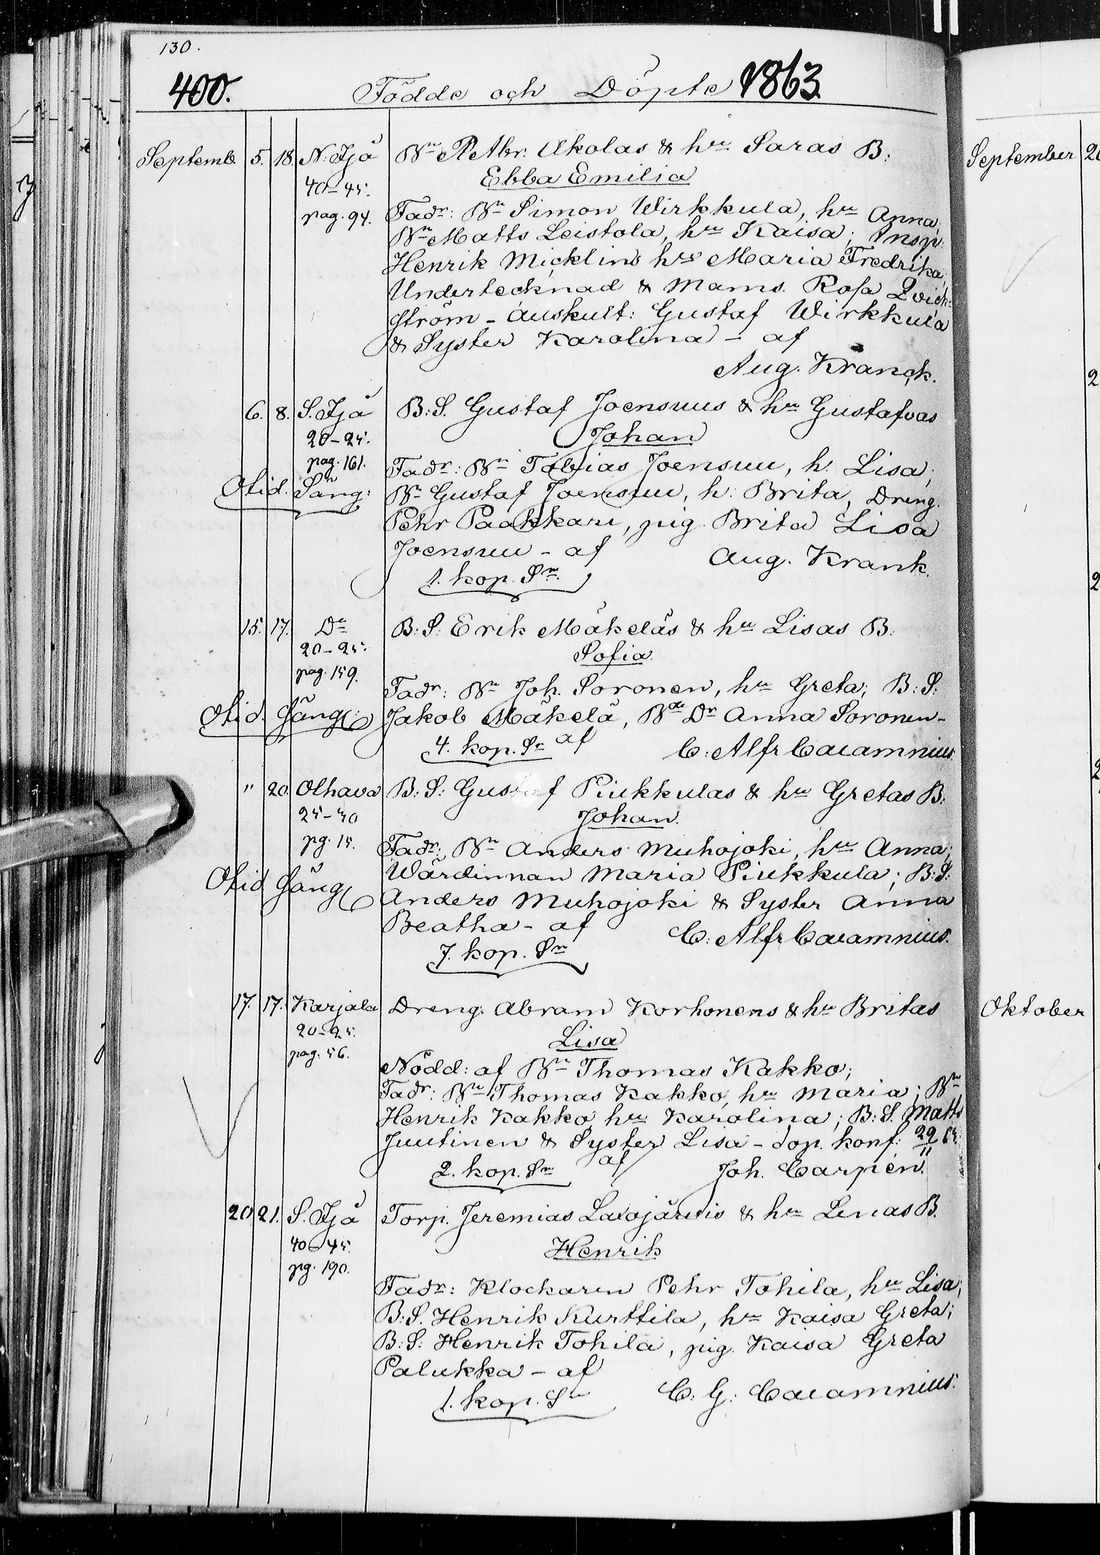 130.
400. Födde och Döpte 1863
Septemb 5. 18. N. Ijå Bn P. Abr. Ukolas & hu Saras B:
40-45. Ebba Emilia
pag. 94. Fadr: Bn Simon Wirkkula, hu Anna,
Bn Matts Leistola, hu Kaisa; Insp.
Henrik Micklins hu Maria Fredrika,
Undertecknad & Mams. Rosa Qvick-
ström - Auskult: Gustaf Wirkkula
& Syster Karolina - af
Aug. Kranck.
6. 8. S. Ijå B:S. Gustaf Joensuus & hu Gustafvas
20-25. Johan
pag. 161. Fadr: Bn Tobias Joensuu, h. Lisa,
Otid. Säng: Bn Gustaf Joensuu, h: Brita, Dreng.
Pehr Paakkari, pig. Brita Lisa
Joensuu - af Aug. Krank.
1. kop. Sr.
15. 17. Do B:S: Erik Mäkeläs & hu Lisas B.
20-25. Sofia
pag. 159. Fadr: Bn Joh. Soronen, hu Greta; B:S:
Otid. Säng: Jakob Mäkelä, Bde Dr Anna Soronen-
4. kop. Sr af C: Alfr Cajamnius
" 20. Olhava B:S: Gustaf Piukkulas & hu Gretas B:
25-30 Johan.
pg. 15. Fadr: Bn Anders Muhojoki, hu Anna;
Otid Säng Wärdinnan Maria Piukkula; B:S:
Anders Muhojoki & Syster Anna
Beatha - af C: Alfr Cajamnius.
7. kop. Sr
17. 17. Karjala Dreng. Abram Korhonens & hu Britas
20-25. Lisa
pag. 56. Nödd: af Bn Thomas Kakko;
Fadr: Bn Thomas Kakko, hu Maria; Bn
Henrik Kakko, hu Karolina; B:S. Matts
Juutinen & Syster Lisa - dop. konf: 29/11 63.
2. kop. Sr af Joh. Carpén.
20. 21. S. Ijå Torp. Jeremias Lavajärvis & hu Lenas B.
40-45. Henrik
pg. 190.
Fadr: Klockaren Pehr Tohila, hu Lisa;
B:S. Henrik Kurttila, hu Kaisa Greta;
B:S: Henrik Tohila, pig. Kaisa Greta
Palukka - af
1. kop. Sr C. G: Cajamnius.
September
Oktober